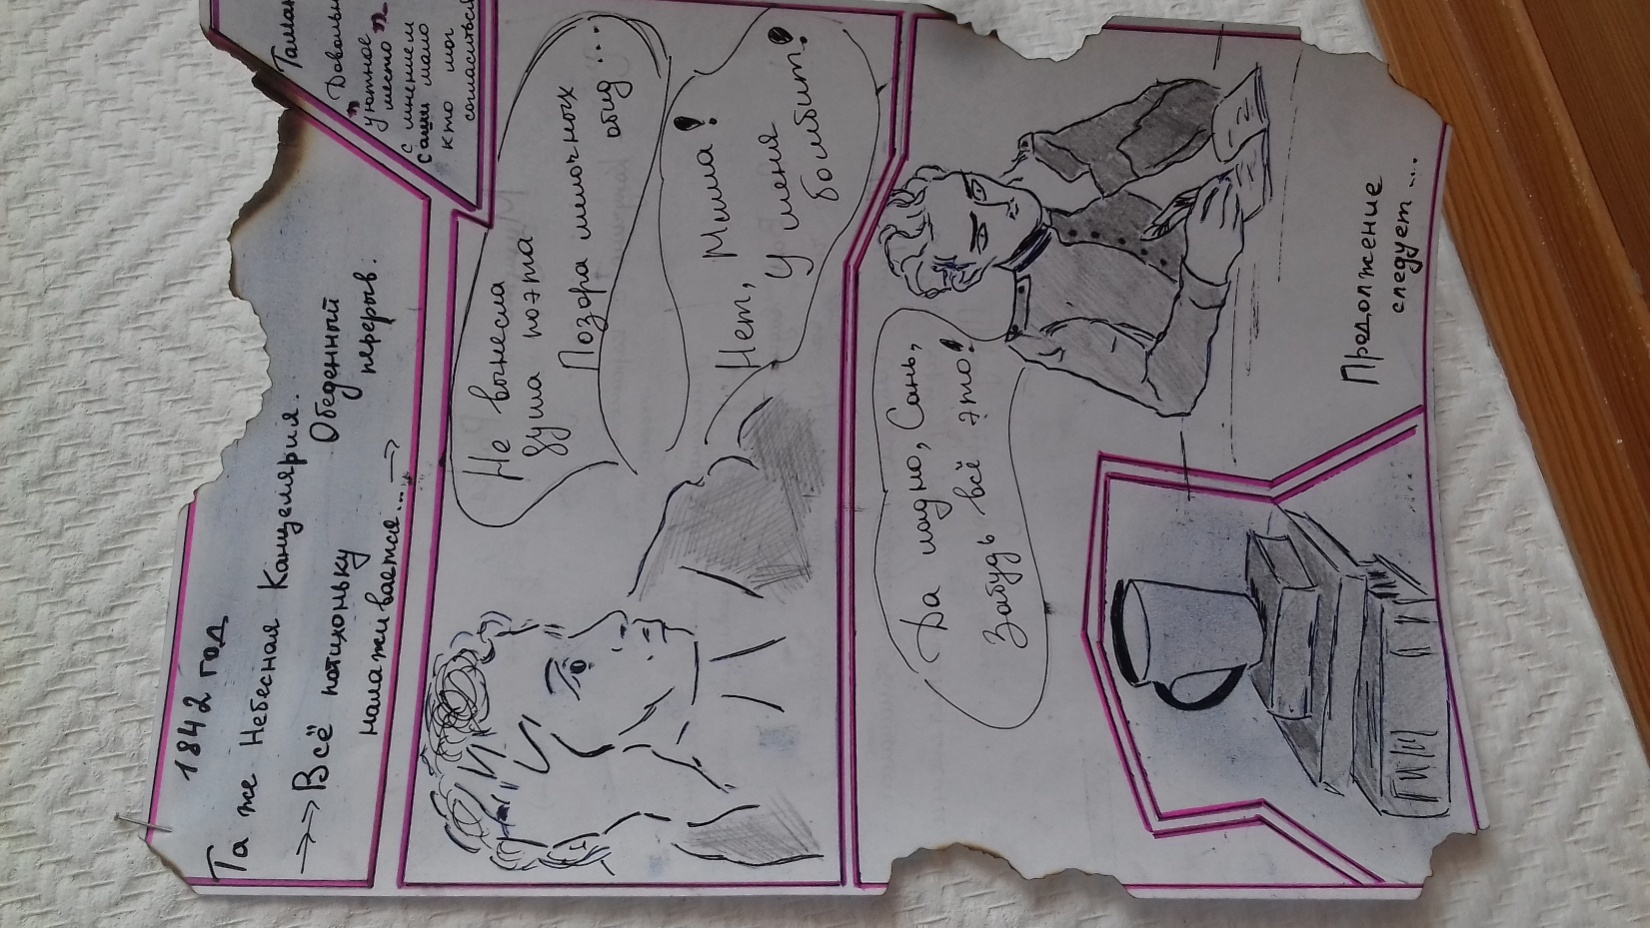 1842 год
Та же Небесная Канцелярия.
→→ Всё потихоньку
налаживается... →
Обеденный
перерыв.
Таман
" Довольно
уютное
место "
С мнением
Саши мало
кто мог
согласиться
Не вынесла
душа поэта
Позора мелочных
обид...
Нет, Миша!
У меня
болбит!
Да ладно, Сань,
Забудь всё это!
Продолжение
следует....